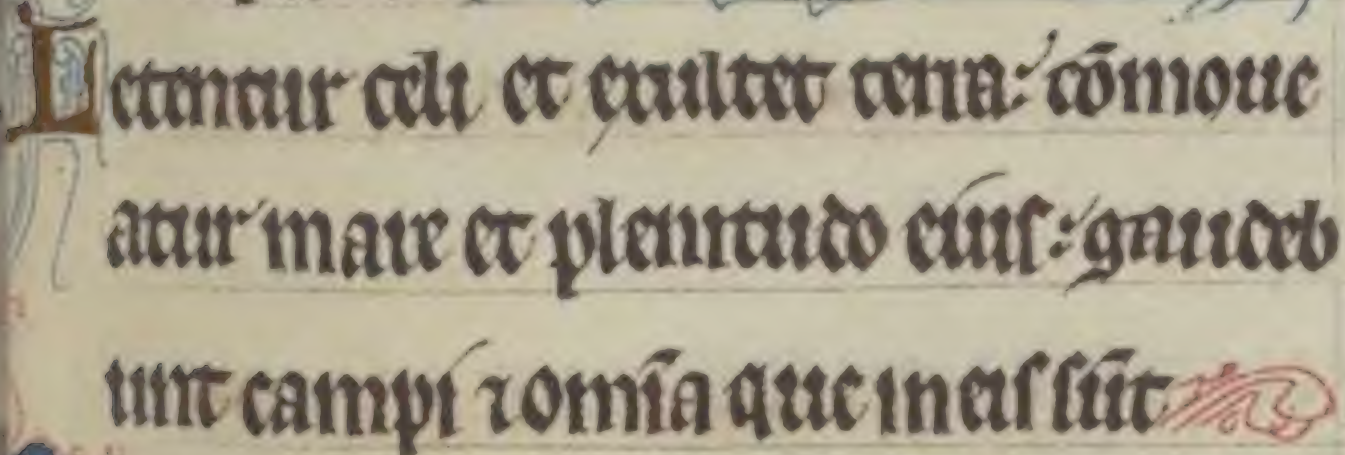 Letentur celi et exultet terra: cōmoue
atur mare et plenitudo eius: gaudeb
unt campi ⁊ omīa que in eis sūt